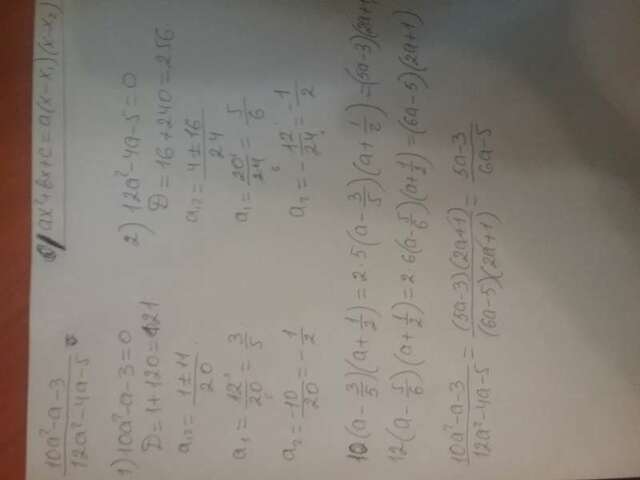 (10a²-a-3)/(12a²-4a-5)
ax²+bx+c=a(x-x₁)(x-x₂)
1) 10a²-a-3=0
D=1+120=121
a₁,₂=(1±11)/20
a₁=12/20=3/5
a₂=-10/20=-1/2
2) 12a²-4a-5=0
D=16+240=256
a₁,₂=(4±16)/24
a₁=20/24=5/6
a₂=-12/24=-1/2
10(a-3/5)(a+1/2)=2·5(a-3/5)(a+1/2)=(5a-3)(2a+1)
12(a-5/6)(a+1/2)=2·6(a-5/6)(a+1/2)=(6a-5)(2a+1)
(10a²-a-3)/(12a²-4a-5)=((5a-3)(2a+1))/((6a-5)(2a+1))=(5a-3)/(6a-5)